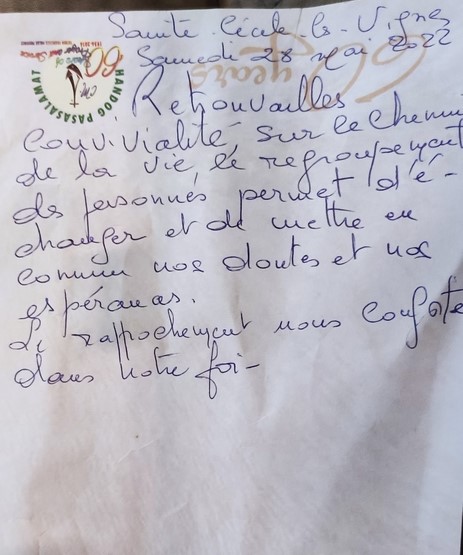 Sainte Cécile-les-Vignes
Samedi 28 mai 2022
60 years
HANDOG PASASALAMAT
Retrouvailles
Convivialité, sur le chemin
de la vie, le regroupement
des personnes permet d'é-
changer et de mettre en
commun nos doutes et nos
espérances.
Le rapprochement nous conforte
dans notre foi-